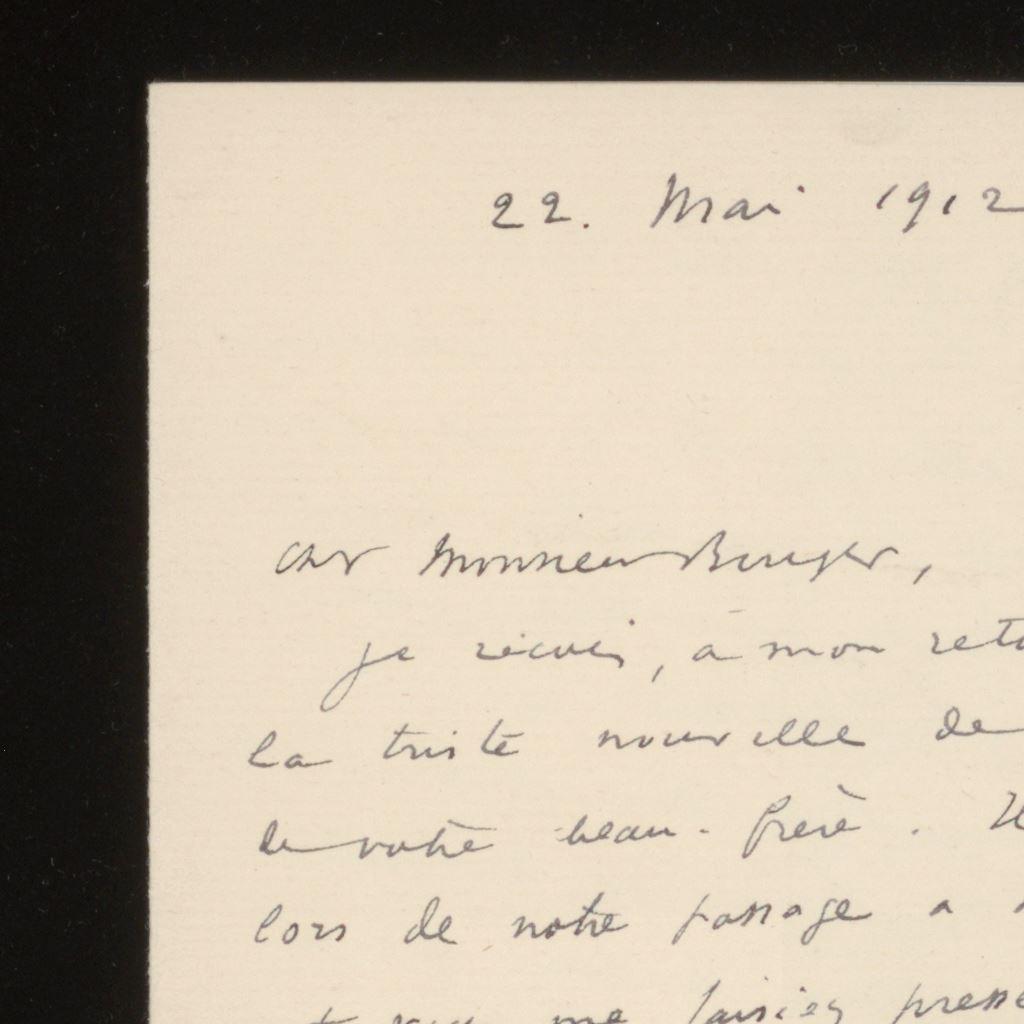 22. Mai 1912
Cher Monsieur Berger,
je reçois, à mon reto
la triste nouvelle de
de votre beau-frère.
lors de notre passage a
me faisiez presse